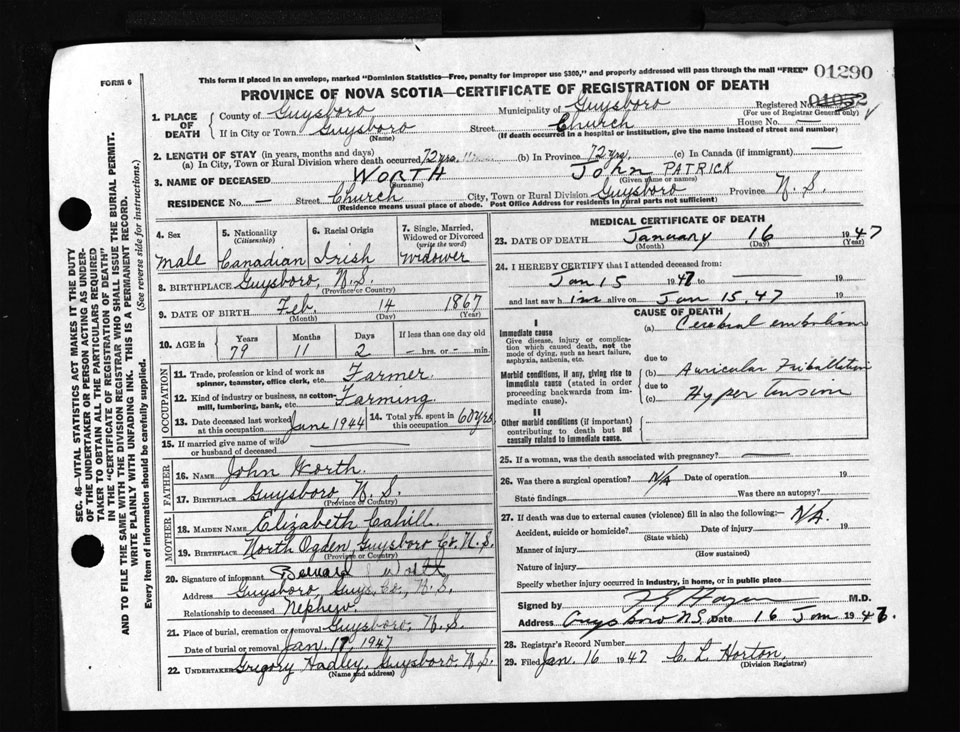 This form if placed in an envelope, marked "Dominion Statistics—Free, penalty for improper use $300," and properly addressed will pass through the mail "FREE" 01290
FORM 6
PROVINCE OF NOVA SCOTIA—CERTIFICATE OF REGISTRATION OF DEATH
01052
1. PLACE OF DEATH County of Guysboro Municipality of Guysboro Registered No. (For use of Registrar General only)
If in City or Town Guysboro (Name) Street Church House No. —
(If death occurred in a hospital or institution, give the name instead of street and number)
2. LENGTH OF STAY (in years, months and days)
(a) In City, Town or Rural Division where death occurred 72 yrs. (b) In Province 72 yrs. (c) In Canada (if immigrant) —
3. NAME OF DECEASED WORTH (Surname) John PATRICK (Given name or names)
RESIDENCE No. — Street Church City, Town or Rural Division Guysboro Province N.S.
(Residence means usual place of abode. Post Office Address for residents in rural parts not sufficient)
4. Sex male
5. Nationality (Citizenship) Canadian
6. Racial Origin Irish
7. Single, Married, Widowed or Divorced (write the word) Widower
8. BIRTHPLACE Guysboro, N.S. (Province or Country)
9. DATE OF BIRTH Feb. (Month) 14 (Day) 1867 (Year)
10. AGE in Years 79 Months 11 Days 2 If less than one day old — hrs. or — min.
OCCUPATION
11. Trade, profession or kind of work as spinner, teamster, office clerk, etc. Farmer
12. Kind of industry or business, as cotton-mill, lumbering, bank, etc. Farming
13. Date deceased last worked at this occupation June 1944
14. Total yrs. spent in this occupation 60 yrs.
15. If married give name of wife or husband of deceased
FATHER
16. NAME John Worth.
17. BIRTHPLACE Guysboro, N.S. (Province or Country)
MOTHER
18. MAIDEN NAME Elizabeth Cahill
19. BIRTHPLACE North Ogden, Guysboro Co. N.S. (Province or Country)
20. Signature of informant Bernard Worth
Address Guysboro, Guys. Co., N.S.
Relationship to deceased Nephew.
21. Place of burial, cremation or removal Guysboro, N.S.
Date of burial or removal Jan. 17, 1947
22. UNDERTAKER Gregory Hadley, Guysboro N.S. (Name and address)
MEDICAL CERTIFICATE OF DEATH
23. DATE OF DEATH January (Month) 16 (Day) 1947 (Year)
24. I HEREBY CERTIFY that I attended deceased from:
Jan 15 1947 to 19
and last saw him alive on Jan 15, 47 19
CAUSE OF DEATH
I
Immediate cause
Give disease, injury or complication which caused death, not the mode of dying, such as heart failure, asphyxia, asthenia, etc.
(a) Cerebral embolism
due to
Morbid conditions, if any, giving rise to immediate cause (stated in order proceeding backwards from immediate cause).
(b) Auricular Fribullation
due to
(c) Hyper Tension
II
Other morbid conditions (if important) contributing to death but not causally related to immediate cause.
25. If a woman, was the death associated with pregnancy? —
26. Was there a surgical operation? N/A Date of operation 19
State findings Was there an autopsy?
27. If death was due to external causes (violence) fill in also the following:— N/A.
Accident, suicide or homicide? (State which) Date of injury 19
Manner of injury (How sustained)
Nature of injury
Specify whether injury occurred in industry, in home, or in public place
Signed by M.D.
Address Guysboro N.S. Date 16 Jan 1947.
28. Registrar's Record Number
29. Filed Jan. 16 1947 C. L. Horton, (Division Registrar)
SEC. 46—VITAL STATISTICS ACT MAKES IT THE DUTY
OF THE UNDERTAKER OR PERSON ACTING AS UNDER-
TAKER TO OBTAIN ALL THE PARTICULARS REQUIRED
IN THE "CERTIFICATE OF REGISTRATION OF DEATH"
AND TO FILE THE SAME WITH THE DIVISION REGISTRAR WHO SHALL ISSUE THE BURIAL PERMIT.
WRITE PLAINLY WITH UNFADING INK. THIS IS A PERMANENT RECORD.
Every item of information should be carefully supplied. (See reverse side for instructions.)